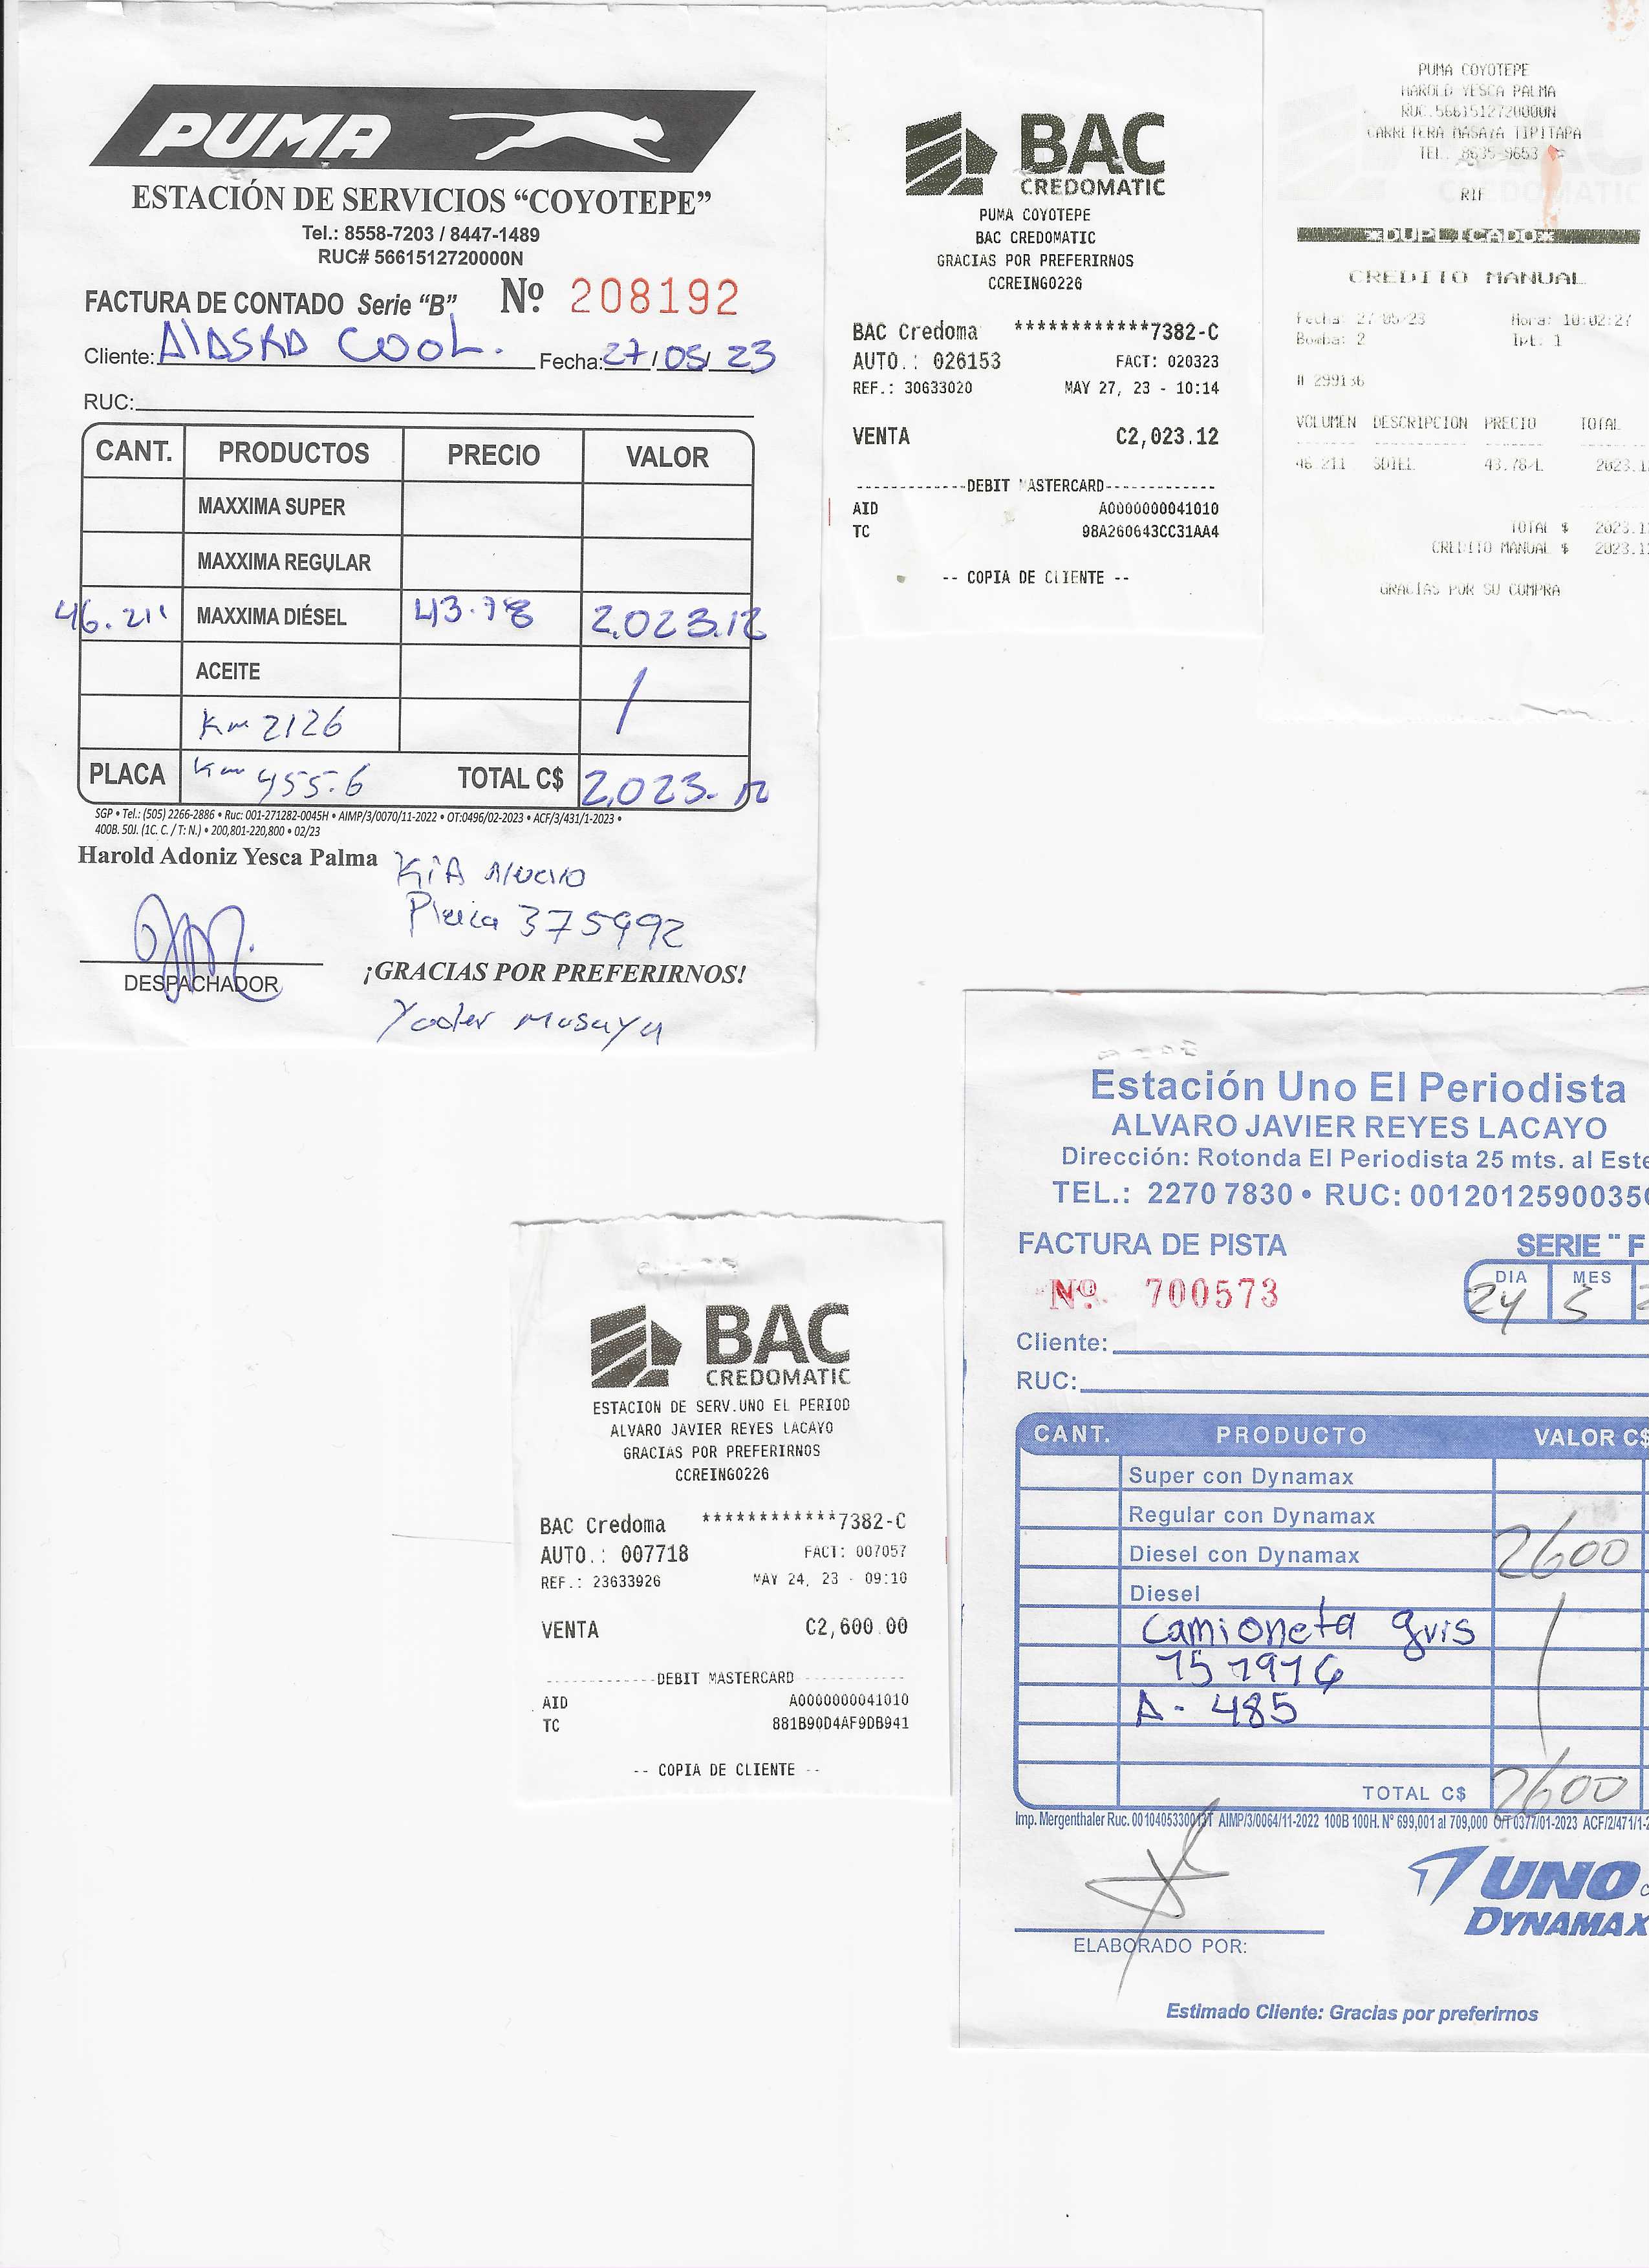 PUMA
ESTACIÓN DE SERVICIOS “COYOTEPE”
Tel.: 8558-7203 / 8447-1489
RUC# 5661512720000N
FACTURA DE CONTADO Serie “B” Nº 208192
Cliente: Alaska Cool. Fecha: 27/05/23
RUC:
CANT. PRODUCTOS PRECIO VALOR
MAXXIMA SUPER
MAXXIMA REGULAR
46.211 MAXXIMA DIÉSEL 43.78 2,023.12
ACEITE /
Km 2126
PLACA Km 455.6 TOTAL C$ 2,023.12
SGP • Tel.: (505) 2266-2886 • Ruc: 001-271282-0045H • AIMP/3/0070/11-2022 • OT:0496/02-2023 • ACF/3/431/1-2023 •
400B. 50J. (1C. C. / T: N.) • 200,801-220,800 • 02/23
Harold Adoniz Yesca Palma
KIA Nuevo
Placa 375992
DESPACHADOR
¡GRACIAS POR PREFERIRNOS!
Yoder Masaya
BAC
CREDOMATIC
PUMA COYOTEPE
BAC CREDOMATIC
GRACIAS POR PREFERIRNOS
CCREING0226
BAC Credoma ************7382-C
AUTO.: 026153 FACT: 020323
REF.: 30633020 MAY 27, 23 - 10:14
VENTA C2,023.12
------------DEBIT MASTERCARD------------
AID A0000000041010
TC 98A260643CC31AA4
-- COPIA DE CLIENTE --
PUMA COYOTEPE
HAROLD YESCA PALMA
RUC.5661512720000N
CARRETERA MASAYA TIPITAPA
TEL. 8635-9653
RIF
*DUPLICADO*
CREDITO MANUAL
Fecha: 27/05/23 Hora: 10:02:27
Bomba: 2 Ipt: 1
# 299136
VOLUMEN DESCRIPCION PRECIO TOTAL
46.211 SDIEL 43.78/L 2023.1
TOTAL $ 2023.1
CREDITO MANUAL $ 2023.1
GRACIAS POR SU COMPRA
BAC
CREDOMATIC
ESTACION DE SERV.UNO EL PERIOD
ALVARO JAVIER REYES LACAYO
GRACIAS POR PREFERIRNOS
CCREING0226
BAC Credoma ************7382-C
AUTO.: 007718 FACT: 007057
REF.: 23633926 MAY 24, 23 - 09:10
VENTA C2,600.00
------------DEBIT MASTERCARD------------
AID A0000000041010
TC 881B90D4AF9DB941
-- COPIA DE CLIENTE --
Estación Uno El Periodista
ALVARO JAVIER REYES LACAYO
Dirección: Rotonda El Periodista 25 mts. al Este
TEL.: 2270 7830 • RUC: 0012012590035
FACTURA DE PISTA SERIE "F
Nº 700573 DIA MES
24 5
Cliente:
RUC:
CANT. PRODUCTO VALOR C$
Super con Dynamax
Regular con Dynamax
Diesel con Dynamax 2600
Diesel
Camioneta gris
A- 485
TOTAL C$ 2600
Imp. Mergenthaler Ruc. AIMP/3/0064/11-2022 100B 100H. Nº 699,001 al 709,000 O/T 0377/01-2023 ACF/2/471/1-
UNO
DYNAMAX
ELABORADO POR:
Estimado Cliente: Gracias por preferirnos